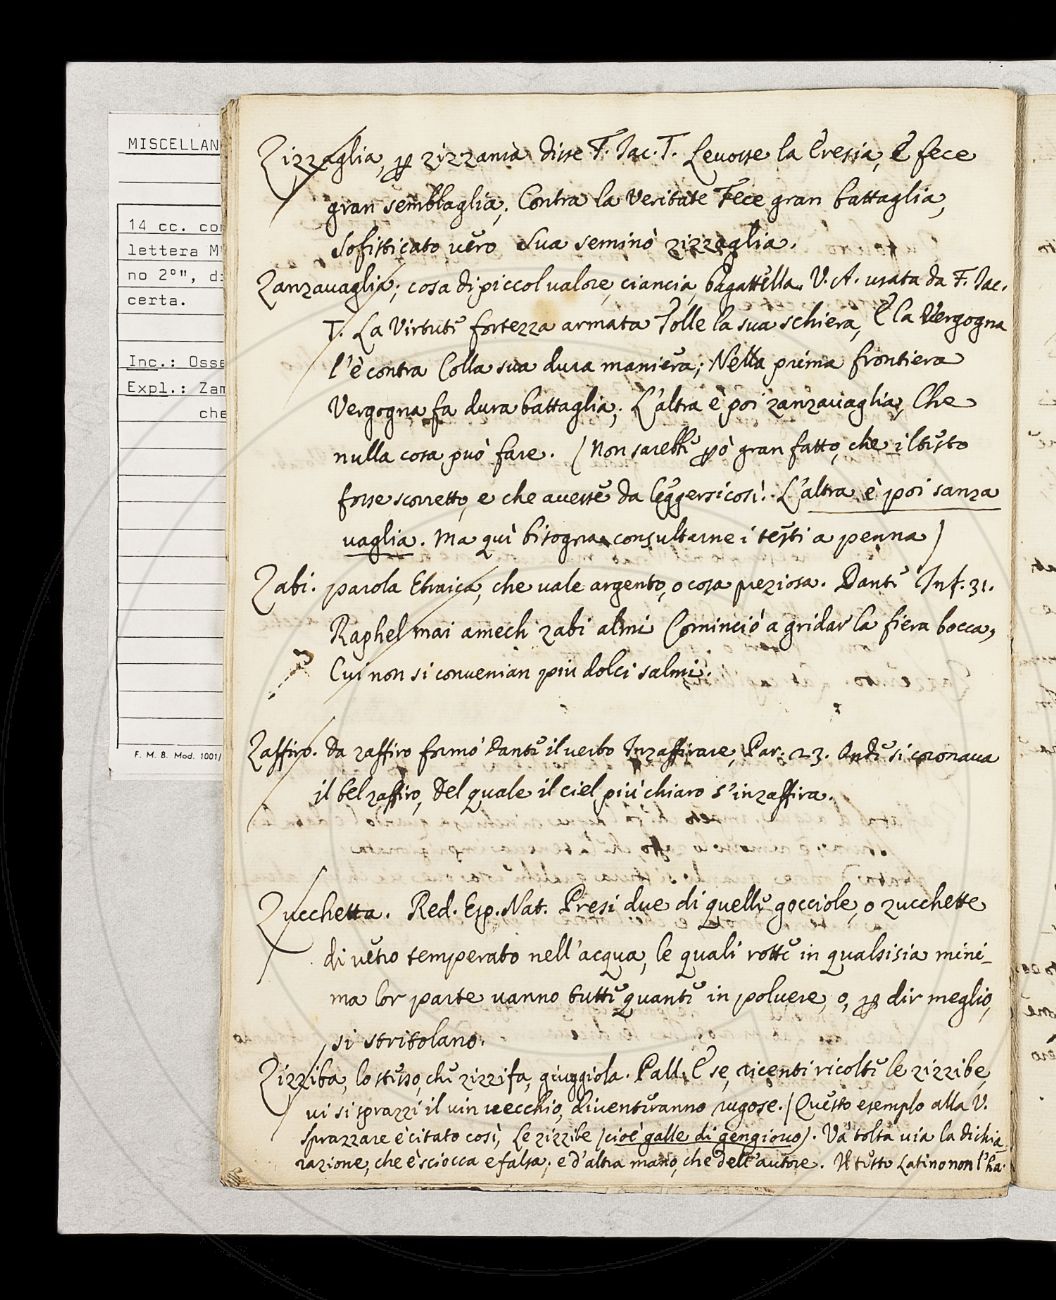 MISCELLAN
14 cc. co
lettera M
no 2°", d
certa.
Inc.: Osse
Expl.: Zam
che
F. M. B. Mod. 1001/
Zizzaglia, ꝑ zizzania disse F. Iac. T. Levosse la Eresia, E fece
gran semblaglia, Contra la Veritate Fece gran battaglia,
Sofisticato vero Sua seminò zizzaglia.
Zanzavaglia; cosa di piccol valore, ciancia, bagattella. V. A. usata da F. Iac.
T. La Virtute fortezza armata Tolle la sua schiera, E la Vergogna
l'è contra Colla sua dura maniera; Nella prima frontiera
Vergogna fa dura battaglia; L'altra è poi zanzavaglia, Che
nulla cosa può fare. (Non sarebbe ꝑò gran fatto, che il testo
fosse scorretto, e che avesse da leggersi così: L'altra è poi sanza
vaglia. Ma quì bisogna consultarne i testi a penna)
Zabi. parola Ebraica, che vale argento, o cosa preziosa. Dante Inf. 31.
Raphel mai amech zabi almi Cominciò a gridar la fiera bocca,
Cui non si convenian più dolci salmi.
Zaffiro. da zaffiro formò Dante il verbo Inzaffirare, Par. 23. Onde si coronava
il bel zaffiro, Del quale il ciel più chiaro s'inzaffira.
Zucchetta. Red. Esp. Nat. Presi due di quelle gocciole, o zucchette
di vetro temperato nell'acqua, le quali rotte in qualsisia mini-
ma lor parte vanno tutte quante in polvere, o, ꝑ dir meglio,
si stritolano.
Zizziba, lo stesso, che zizzifa, giuggiola. Pall. E se, ricenti ricolte le zizzibe,
vi si sprazzi il vin vecchio, diventeranno rugose. (Questo esemplo alla V.
Sprazzare è citato così, Le zizzibe (cioè galle di gengiovo). Va tolta via la dichia-
razione, che è sciocca e falsa, e d'altra mano, che dell'autore. Il testo Latino non l'ha.